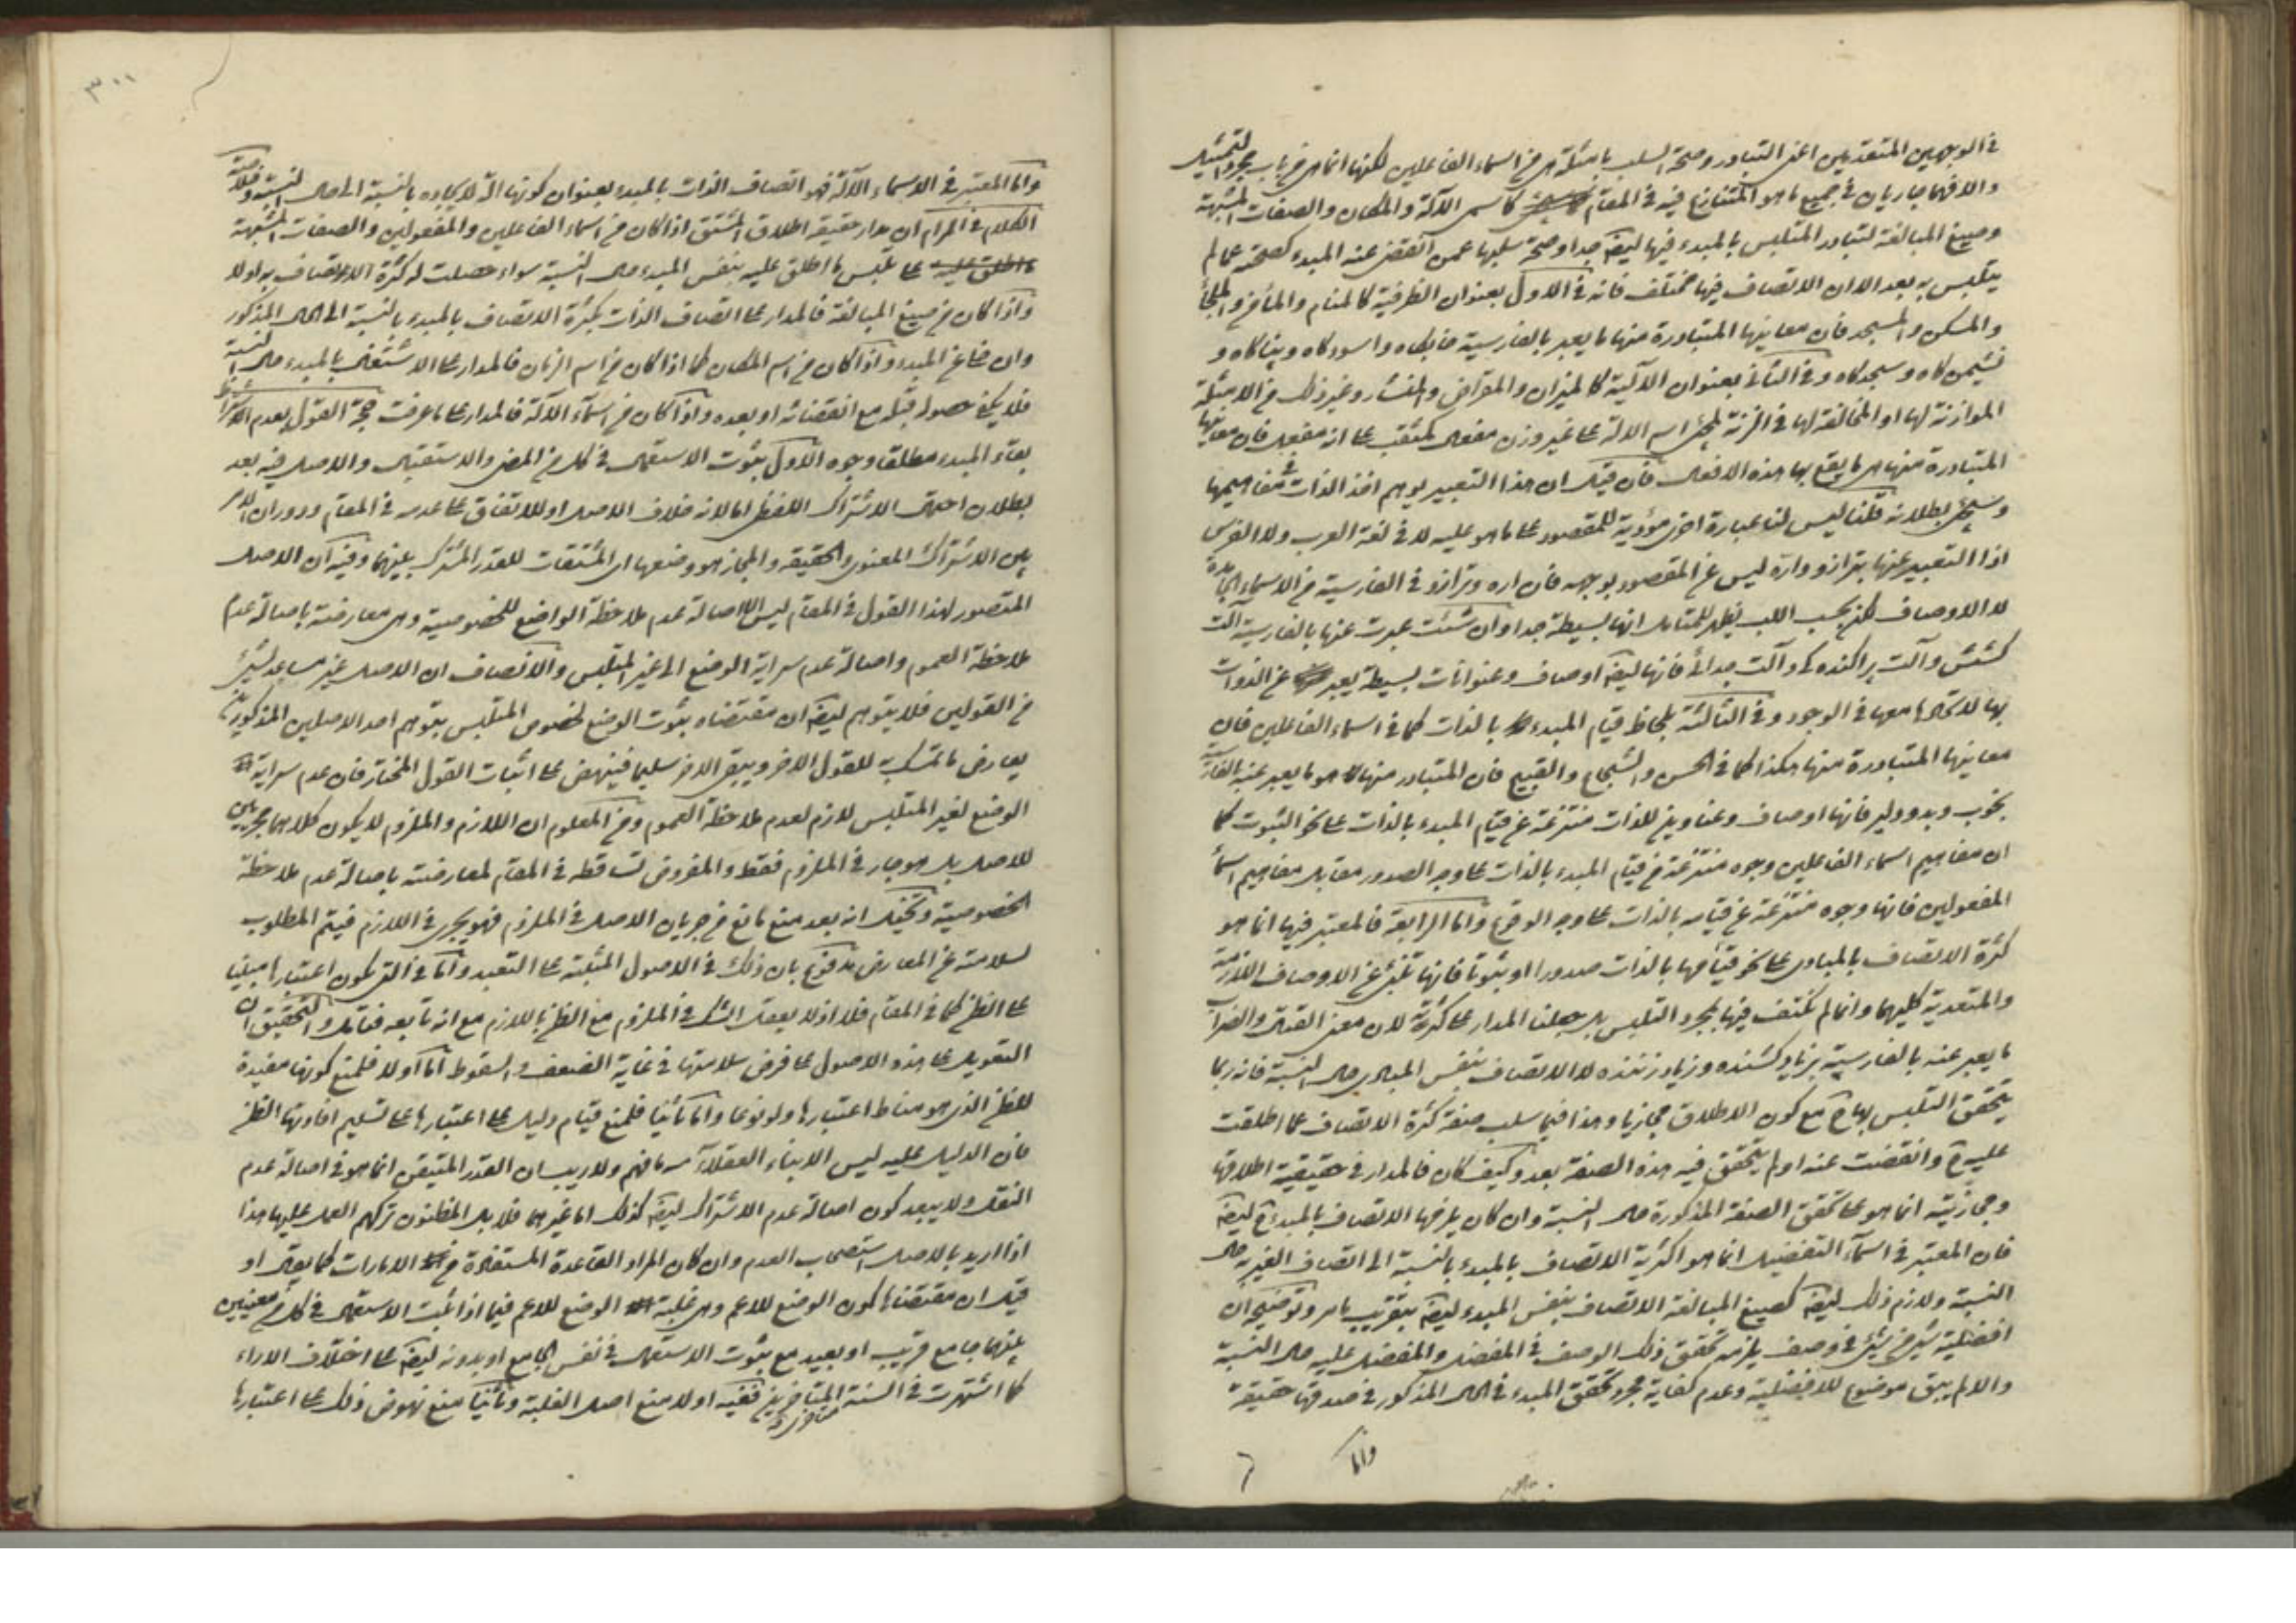 في الوجهين المتقدمين اعني التبادر وصحة السلب بامثلة هي من اسماء الفاعلين لكنها انما هي من باب مجرد التمثيل
والا فهما جاريان في جميع ما هو المتنازع فيه في المقام كاسمي الآلة والمكان والصفات المشبهة
وصيغ المبالغة لتبادر المتلبس بالمبدء فيها ايضا جدا وصحة سلبها عمن انقضى عنه المبدء كصحته عما لم
يتلبس به بعد الا ان الاتصاف فيها مختلف فانه في الاول بعنوان الظرفية كالمنام والمأخذ والملجأ
والمسكن والمسجد فان معانيها المتبادرة منها ما يعبر بالفارسية خابگاه واسودگاه وپناگاه و
نشيمن گاه وسجدگاه وفي الثاني بعنوان الآلية كالميزان والمقراض والمنشار وغير ذلك من الامثلة
الموازنة لها او المخالفة لها في الزنة لمجئ اسم الالة على غير وزن مفعال كمثقب على انه مفعل فان معانيها
المتبادرة منها هي ما يقع بها هذه الافعال فان قيل ان هذا التعبير يوهم اخذ الذات في مفاهيمها
وسيجئ بطلانه قلنا ليس لنا عبارة اخرى مؤدية للمقصود على ما هو عليه لا في لغة العرب ولا الفرس
اذا التعبير عنها بترازو واره ليس عن المقصود بوجه فان اره وترازو في الفارسية من الاسماء الجامدة
لا الاوصاف لكن بحسب اللب يظهر للمتامل انها بسيطة جدا وان شئت عبرت عنها بالفارسية آلت
كشش وآلت پراكنده كى وآلت جدائى فانها ايضا اوصاف وعنوانات بسيطة يعبر عن الذوات
بها لاتحادها معها في الوجود وفي الثالثة بلحاظ قيام المبدء بالذات كما في اسماء الفاعلين فان
معانيها المتبادرة منها هكذا كما في الحسن والشجاع والقبيح فان المتبادر منها هو ما يعبر عنه بالفارسية
بخوب وبد ودلير فانها اوصاف وعناوين للذات منتزعة عن قيام المبدء بالذات على نحو الثبوت كما
ان مفاهيم اسماء الفاعلين وجوه منتزعة من قيام المبدء بالذات على وجه الصدور مقابل مفاهيم اسماء
المفعولين فانها وجوه منتزعة عن قيامه بالذات على وجه الوقوع واما الرابعة فالمعتبر فيها انما هو
كثرة الاتصاف بالمبادي على نحو قيامها بالذات صدورا او ثبوتا فانها تجئ عن الاوصاف اللازمة
والمتعدية كليهما وانما لم نكتف فيها بمجرد التلبس بل جعلنا المدار على كثرته لان معنى القتال والضراب
ما يعبر عنه بالفارسية بزياد كشنده وزياد زننده لا الاتصاف بنفس المبادي حال النسبة فانه ربما
يتحقق التلبس بها ح مع كون الاطلاق مجازيا وهذا فيما سلب صفة كثرة الاتصاف عما اطلقت
عليه ح وانقضت عنه او لم يتحقق فيه هذه الصفة بعد وكيف كان فالمدار في حقيقية اطلاقها
ومجازيته انما هو على تحقق الصفة المذكورة حال النسبة وان كان يلزمها الاتصاف بالمبدء ح ايضا
فان المعتبر في اسماء التفضيل انما هو اكثرية الاتصاف بالمبدء بالنسبة الى اتصاف الغير به حال
النسبة ولازم ذلك ايضا كصيغ المبالغة الاتصاف بنفس المبدء ايضا بتقريب ما مر وتوضيحه ان
افضلية شئ من شئ في وصف يلزمه تحقق ذلك الوصف في المفضل والمفضل عليه حال النسبة
والا لم يبق موضوع للافضلية وعدم كفاية مجرد تحقق المبدء في الحال المذكور في صدقها حقيقة
واما
٣٠٠
واما المعتبر في الاسماء الآلة فهو اتصاف الذات بالمبدء بعنوان كونها آلة لايجاده بالنسبة الى حال النسبة وخلاصة
الكلام في المرام ان مدار حقيقة اطلاق المشتق اذا كان من اسماء الفاعلين والمفعولين والصفات المشبهة
على تلبس ما اطلق عليه بنفس المبدء حال النسبة سواء حصلت له كثرة الاتصاف به او لا
واذا كان من صيغ المبالغة فالمدار على اتصاف الذات بكثرة الاتصاف بالمبدء بالنسبة الى الحال المذكور
وان ضاع المبدء واذا كان من اسم المكان كما اذا كان من اسم الزمان فالمدار على الاشتغال بالمبدء حال النسبة
فلا يكفي حصوله قبله مع انقضائه او بعده واذا كان من اسماء الآلة فالمدار على ما عرفت حجة القول بعدم اشتراط
بقاء المبدء مطلقا وجوه الاول ثبوت الاستعمال في كل من المضي والاستقبال والاصل فيه بعد
بطلان احتمال الاشتراك اللفظي اما لانه خلاف الاصل او للاتفاق على عدمه في المقام ودوران الامر
بين الاشتراك المعنوي والحقيقة والمجاز هو وضعها اي المشتقات للقدر المشترك بينهما وفيه ان الاصل
المتصور لهذا القول في المقام ليس الا اصالة عدم ملاحظة الواضع للخصوصية وهي معارضة باصالة عدم
ملاحظة العموم واصالة عدم سراية الوضع الى غير المتلبس والانصاف ان الاصل غير مساعد لشئ
من القولين فلا يتوهم ايضا ان مقتضاه ثبوت الوضع لخصوص المتلبس بتوهم احد الاصلين المذكورين
يعارض ما تمسك به للقول الاخر ويبقى الاخر سليما فينهض على اثبات القول المختار فان عدم سراية
الوضع لغير المتلبس لازم لعدم ملاحظة العموم ومن المعلوم ان اللازم والملزوم لا يكون كلاهما مجريين
للاصل بل هو جار في الملزوم فقط والمفروض تساقطه في المقام لمعارضته باصالة عدم ملاحظة
الخصوصية وتخيل انه بعد منع مانع من جريان الاصل في الملزوم فهو يجري في اللازم فيتم المطلوب
لسلامته عن المعارض مدفوع بان ذلك في الاصول المثبتة على التعبد واما في التي يكون اعتبارها مبنيا
على الظن كما في المقام فلا اذ لا يعقل الشك في الملزوم مع الظن باللازم مع انه تابعه فتامل والتحقيق ان
التعويل على هذه الاصول على فرض سلامتها في غاية الضعف والسقوط اما اولا فلمنع كونها مفيدة
للظن الذي هو مناط اعتبارها ولو نوعا واما ثانيا فلمنع قيام دليل على اعتبارها على تسليم افادتها الظن
فان الدليل عليه ليس الا بناء العقلاء ولا ريب ان القدر المتيقن انما هو في اصالة عدم
النقل ولا يبعد كون اصالة عدم الاشتراك ايضا كذلك اما غيرهما فلا بل المظنون تركهم العمل عليها هذا
اذا اريد بالاصل استصحاب العدم وان كان المراد القاعدة المستفادة من الامارات كما يقال او
قيل ان مقتضاها كون الوضع للاعم وهي غلبة الوضع للاعم فيما اذا ثبت الاستعمال في كل من معنيين
بينهما جامع قريب او بعيد مع ثبوت الاستعمال في نفس الجامع او بدونه ايضا على اختلاف الاراء
كما اشتهرت في السنة المتاخرين ففيه اولا منع اصل الغلبة وثانيا منع نهوض ذلك على اعتبارها